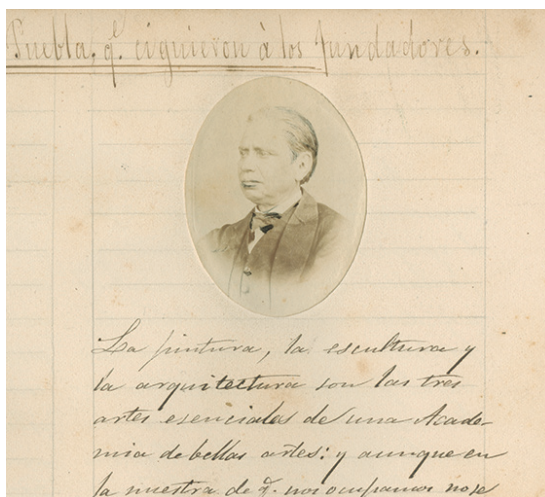 Puebla, q. ciguieron à los fundadores.
La pintura, la escultura y
la arquitectura son las tres
artes esenciales de una Acade-
mia de bellas artes: y aunque en
la nuestra de q. nos ocupamos no se